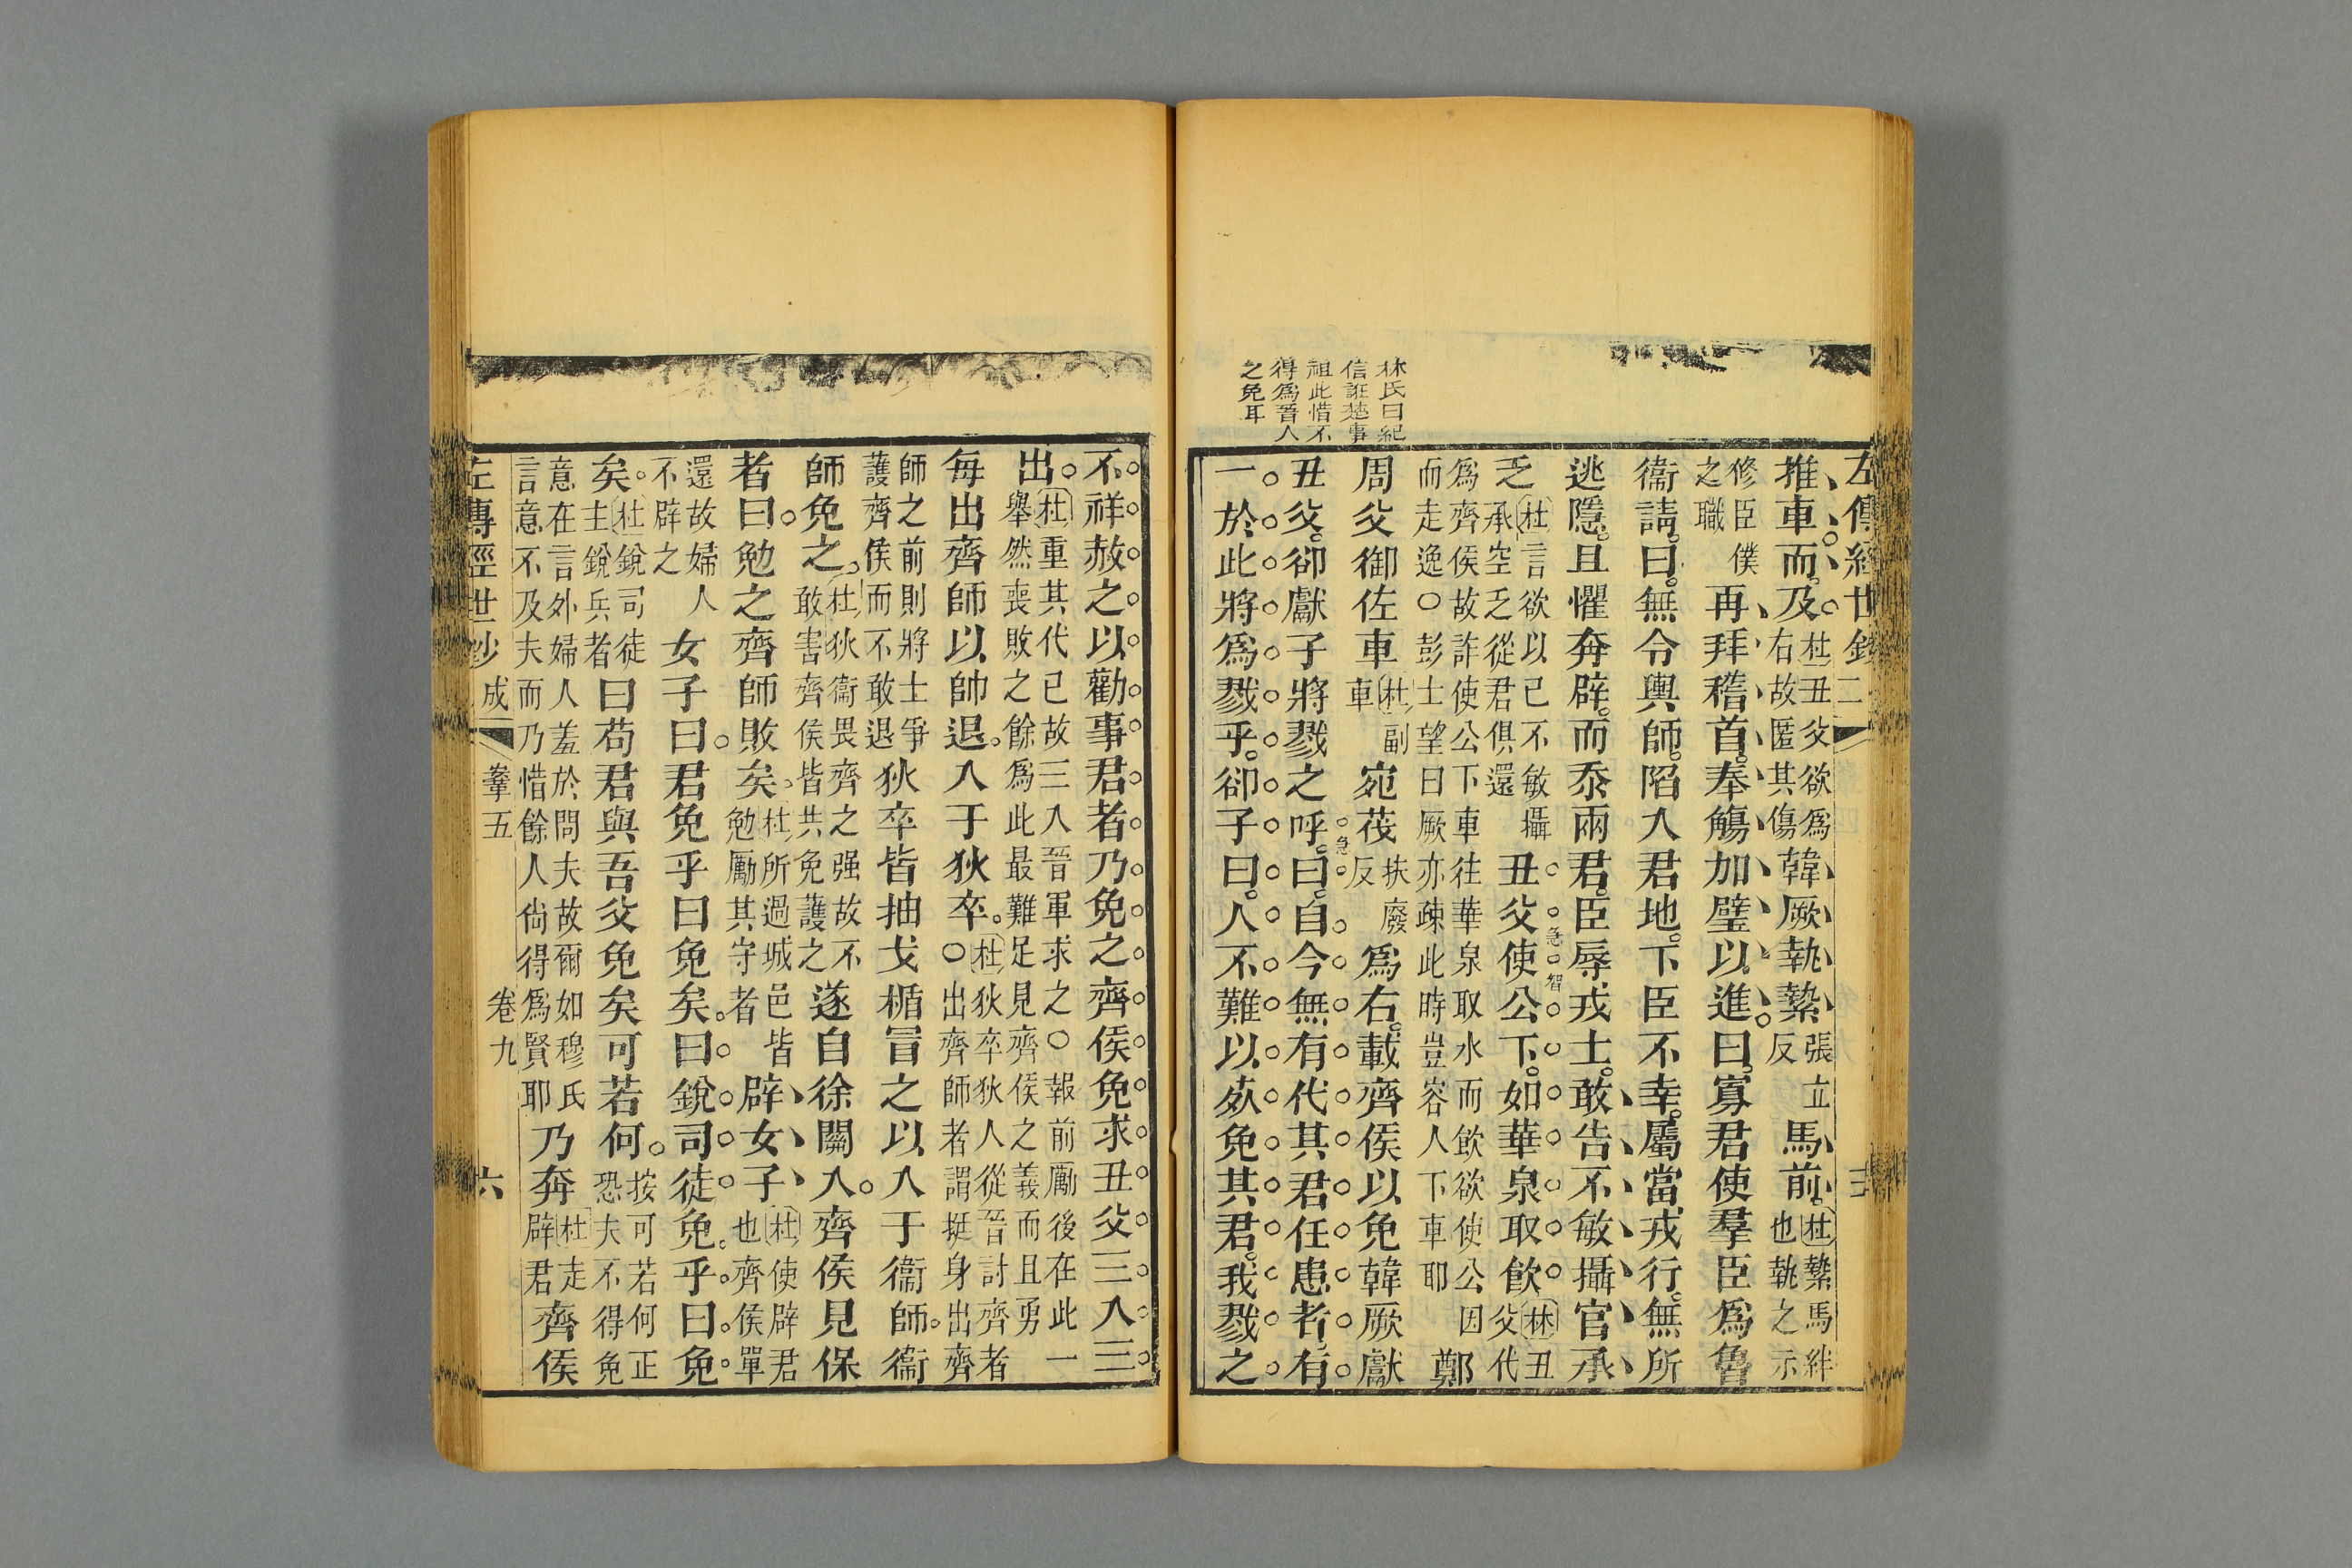 左傳經世鈔二
推車而及杜丑父欲爲右故匿其傷韓厥執縶張立反馬前杜縶馬絆也執之示
修臣僕之職再拜稽首奉觴加璧以進曰寡君使羣臣爲魯
衞請曰無令輿師陷入君地下臣不幸屬當戎行無所
逃隱且懼奔辟而忝兩君臣辱戎士敢告不敏攝官承
乏杜言欲以已不敏攝承空乏從君俱還丑父使公下如華泉取飲林丑父代
爲齊侯故詐使公下車往華泉取水而飲欲使公因而走逸○彭士望曰厥亦疎此時豈容人下車耶鄭
周父御佐車杜副車宛茷扶廢反爲右載齊侯以免韓厥獻
丑父郤獻子將戮之呼曰自今無有代其君任患者有
一於此將爲戮乎郤子曰人不難以死免其君我戮之
急
智
急
林氏曰紀
信誑楚事
祖此惜不
得爲晉人
之免耳
不祥赦之以勸事君者乃免之齊侯免求丑父三入三
出杜重其代已故三入晉軍求之○報前厲後在此一舉然喪敗之餘爲此最難足見齊侯之義而且勇
每出齊師以帥退入于狄卒○杜狄卒狄人從晉討齊者出齊師者謂挺身出齊
師之前則將士爭護齊侯而不敢退狄卒皆抽戈楯冒之以入于衞師衞
師免之杜狄衞畏齊之强故不敢害齊侯皆共免護之遂自徐關入齊侯見保
者曰勉之齊師敗矣杜所過城邑皆勉厲其守者辟女子杜使辟君也齊侯單
還故婦人不辟之女子曰君免乎曰免矣曰銳司徒免乎曰免
矣杜銳司徒主銳兵者曰苟君與吾父免矣可若何按可若何正恐夫不得免
意在言外婦人羞於問夫故爾如穆氏言意不及夫而乃惜餘人尙得爲賢耶乃奔杜走辟君齊侯
左傳經世鈔 成 鞌五 卷九 六